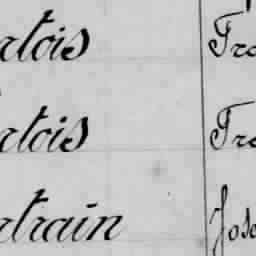 rtois Fra
rtois Fra
rtrain Jose